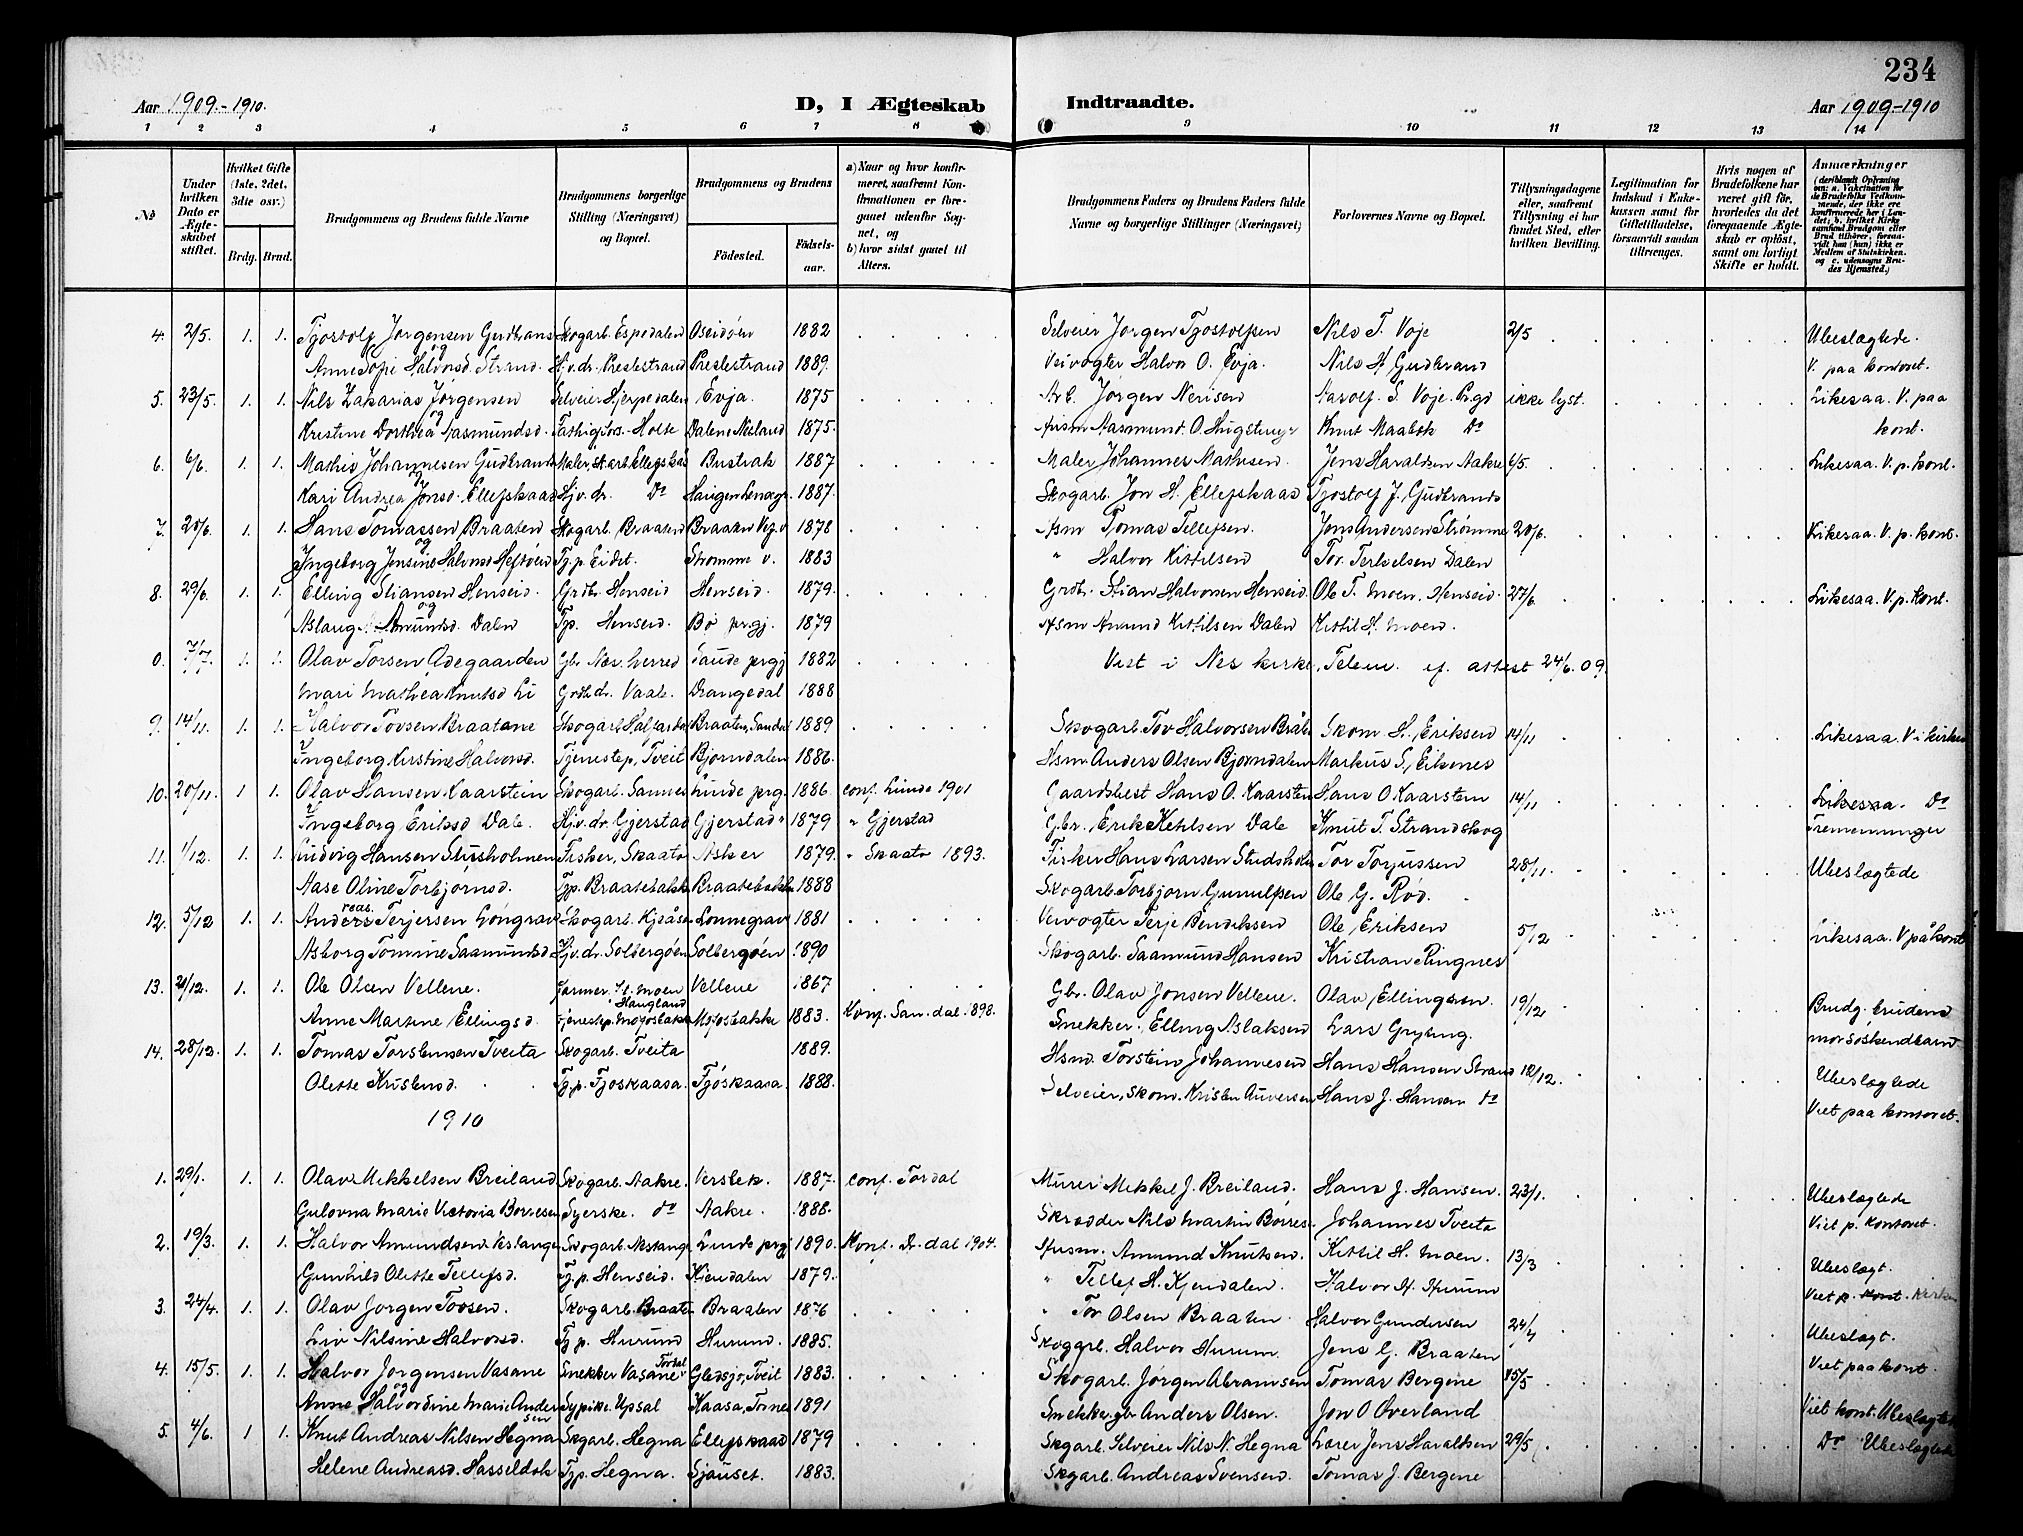 234
Aar 1909.-1910. D, I Ægteskab Indtraadte. Aar 1909-1910
1 2 3 4 5 6 7 8 9 10 11 12 13 14
No
Under hvilken Dato er Ægteskabet stiftet.
Hvilket Gifte (1ste, 2det, 3die osv.)
Brdg. Brud.
Brudgommens og Brudens fulde Navne
Brudgommens borgerlige Stilling (Næringsvei) og Bopæl.
Brudgommens og Brudens
Fødested. Fødselsaar.
a) Naar og hvor konfirmeret, saafremt Konfirmationen er foregaaet udenfor Sognet, og
b) hvor sidst gaaet til Alters.
Brudgommens Faders og Brudens Faders fulde Navne og borgerlige Stillinger (Næringsvei)
Forlovernes Navne og Bopæl.
Tillysningsdagene eller, saafremt Tillysning ei har fundet Sted, efter hvilken Bevilling.
Legitimation for Indskud i Enkekassen samt for Giftetilladelse, forsaavidt saadan tiltrænges.
Hvis nogen af Brudefolkene har været gift før, hvorledes da det foregaaende Ægteskab er opløst, samt om lovligt Skifte er holdt.
Anmærkninger (deriblandt Oplysning om: a. Vakcination for de Brudefolks Vedkommende, der ikke ere konfirmerede her i Landet; b. hvilket Kirkesamfund Brudgom eller Brud tilhører, forsaavidt han (hun) ikke er Medlem af Statskirken. og c. udensogns Brudes Hjemsted.)
4. 2/5. 1. 1. Tjostolf Jørgensen Gudbrands Skogarb. Espedalen Oseidøen 1882 Selveier Jørgen Tjostolfsen Nils T. Voje 2/5 Ubeslægtede.
og
Anne Sofie Halvorsd. Strand. Hv. dr. Prestestrand Prestestrand 1889. Veivogter Halvor O. Evja. Nils H. Gudbrand V. paa kontoret.
5. 23/5. 1. 1. Nils Zakarias Jørgensen Selveier Hjerpedalen Evja. 1875 Arb. Jørgen Nerisen Aasolf S. Voje. Prgd ikke lyst. Likesaa. V. paa
og
Kristine Dorthea Aasmundsd. Holte Dalene Neiland 1875. Husm Aasmund O. Knut Maalsok Do kont.
6. 6/6. 1. 1. Mathis Johannesen Gudbrands Maler, st. arb. Ellefskås Bustrak 1887 Maler Johannes Mathisen. Jens Haraldsen Aakre 6/5. Likesaa. V. p. kont.
og
Kari Andrea Jonsd. Ellefskaas Hjv. dr. Do Haugen 1887. Skogarb. Jon H. Ellefskaas Tjostolf J. Gudbrands
7. 20/6. 1. 1. Hans Tomassen Braaten Skogarb. Braaten Braaten 1878 Hsm Tomas Tellefsen. Jens Andersen Strømme 20/6. Likesaa. V. p. kont.
og
Ingeborg Jensine Halvorsd Heftøen Tj. p. Eidet. Strømme v. 1883 " Halvor Kittilsen Tor. Terkelsen Dalen
8. 29/6. 1. 1. Elling Stiansen Henseid. Grdbr. Henseid Henseid. 1879. Grdbr. Stian Halvorsen Henseid. Ole T. Moen. Henseid. 27/6. Likesaa. V. p. kont.
og
Aslaug Amundsd. Dalen Tjp. Henseid. Bø prgj. 1879 Hsm Amund Kittilsen Dalen Kittil H. Moen.
0. 7/7. 1. 1. Olav Torsen Ødegaarden Gbr. Næs. herred Saude prgj 1882 Viet i Nes kirke, Telem. ef. attest 24/6. 09.
Mari Mathea Knutsd Li Grdb. dr. Vaale. Drangedal 1888
9. 14/11. 1. 1. Halvor Tovsen Braatane Skogarb. Braaten, Sande 1889 Skogarb Tov Halvorsen Skom. H. Eriksen 14/11 Likesaa. V i kirken
Ingeborg Kirstine Halvorsd. Tjenestep. Tveit Bjørndalen 1886. Hsm. Anders Olsen Bjørndalen Markus S. Eiknes
10. 20/11. 1 1. Olav Hansen Kaarstein Skogarb. Sannes Lunde prg. 1886 conf. Lunde 1901 Gaardsbest Hans O. Kaarsten Hans O Kaarstein 14/11 Likesaa. Do
Ingeborg Eriksd Dale. Hjv. dr. Gjerstad Gjerstad " 1879 " Gjerstad Gbr. Erik Ketilsen Dale Knut T. Strandskog Tremenninger
11. 1/12. 1. 1. Ludvig Hansen Stusholmen Fisker, Skaatø Asker 1879. " Skaatø 1893. Fisker Hans Larsen Studsholm Tor Torjussen 28/11. Ubeslægtede
Aase Oline Torbjørnsd. Tjp. Braatebakk Braatebakk 1888 Skogarb. Torbjørn Gunulfsen Ole G. Rød.
reas.
12. 5/12 1. 1. Anders Terjersen Løngrav Skogarb. Kjøåse Lønnegrav 1881 Veivogter Terje Bendiksen Ole Eriksen 5/12 Likesaa. V på kont
Asborg Tomine Saamundsd. Hjv. dr. Solbergøen Solbergøen 1890 Skogarb. Saamund Hansen Kristian Ringnes
13. 21/12. 1. 1. Ole Olsen Vellene. Farmer. St. Moen Vellene 1867 Gbr. Olav Jonsen Vellene. Olav Ellingsen. 19/12 Brudg. brudens
Haugland
Anne Martine Ellingsd. Tjenestep. Mojosbakke Mojosbakke 1883. Konf. San. dal. 1898. Snekker. Elling Aslaksen Lars Gryting. mor søskendbarn
14. 28/12. 1. 1. Tomas Torstensen Tveita Skogarb. Tveita 1889. Hsm. Torstein Johannesen Hans Hansen Strand 12/12. Ubeslægtede
Olette Kristensd. Tj. p. Fjøskaasa. Fjøskaasa. 1888. Selveier, Skom. Kristen Auversen Hans J. Hansen do Viet paa kontoret.
1910
1. 29/1. 1. 1. Olav Mikkelsen Breiland Skogarb. Aakre. Verstek. 1887. conf. Tørdal Murer Mikkel J. Breiland. Hans J. Hansen. 23/1. Ubeslægtede
Gulovna Marie Victoria Borresen Syerske. do Aakre. 1888. Skrædder Nils Martin Børres. Johannes Tveita Viet p. kontoret.
2. 19/3. 1. 1. Halvor Amundsen Neslange Skogarb. Neslange Lunde prgj 1890. Konf. Dr. dal 1904. Husm. Amund Knutsen. Kittil H. Moen. 13/3 Ubeslægt.
Gunhild Olette Tellefsd. Tj. p. Henseid. Kjendalen 1879. " Tellef H. Kjendalen. Halvor H. Hurum Viet p. kont. Kirken
3. 24/4. 1. 1. Olav Jørgen Tovsen. Skogarb. Braaten Braaten 1876 " Tov Olsen Braaten. Halvor Gundersen 24/4 Ubeslægt.
Liv Nilsine Halvorsd. Tj p. Hurum Hurum. 1885. Skogarb. Halvor Hurum. Jens G. Braaten Viet paa kont.
Tørdal
4. 15/5. 1. 1. Halvor Jørgensen Vasane Snekker Vasane Gledsjø, Tveit 1883. Skogarb. Jørgen Abramsen Tomas Bergene 15/5. Viet kont. Ubeslægtede
og
Anne Halvordine Marie Andersen Sypike. Upsal Kaasa, Tørnes 1891 Snekker. gbr Anders Olsen. Jon O Øverland
5. 4/6. 1 1. Knut Andreas Nilsen Hegna Skgarb. Hegna Ellefskaas 1879 Skgarb. Selveier Nils N. Hegna Lærer Jens Haraldsen 29/5. Do Ubeslægtede
Helene Andreasd. Hasseldok Tjp. Hegna. Sjauset. 1883. Skgarb. Andreas Svensen. Tomas J. Bergene